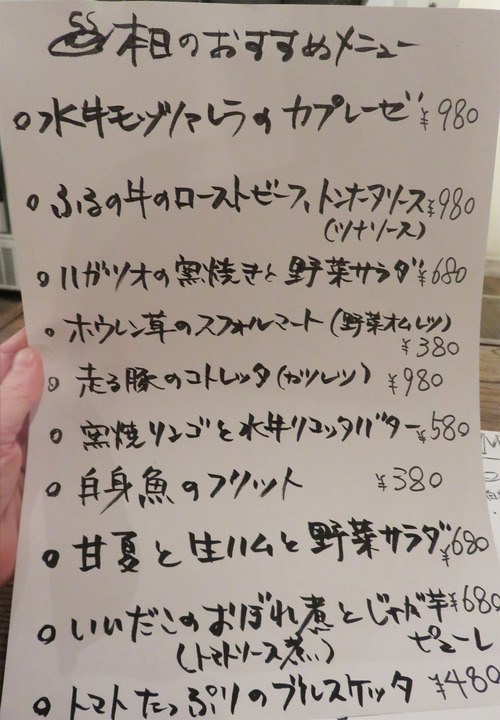 本日のおすすめメニュー
水牛モッツァレラのカプレーゼ ¥980
ふるの牛のローストビーフ、トンナータソース ¥980
(ツナソース)
ハガツオの窯焼きと野菜サラダ ¥680
ホウレン草のスフォルマート(野菜オムレツ)
¥380
走る豚のコトレッタ(カツレツ) ¥980
窯焼リンゴと水牛リコッタバター ¥580
白身魚のフリット ¥380
甘夏と生ハムと野菜サラダ ¥680
いいだこのおぼれ煮とじゃが芋 ¥680
(トマトソース煮) ピューレ
トマトたっぷりのブルスケッタ ¥480